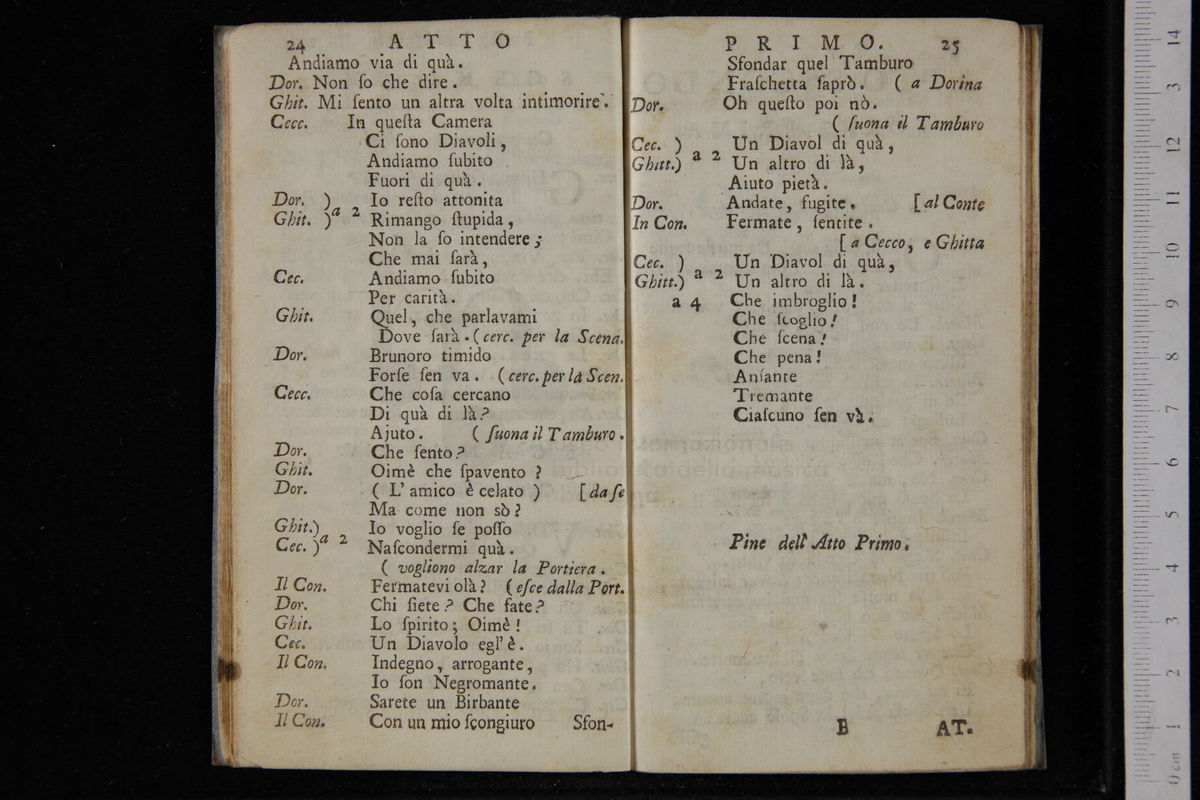 24 ATTO
Andiamo via di quà.
Dor. Non ſo che dire.
Ghit. Mi ſento un altra volta intimorire.
Cecc. In queſta Camera
Ci ſono Diavoli,
Andiamo ſubito
Fuori di quà.
Dor. ) Io reſto attonita
Ghit. ) a 2 Rimango ſtupida,
Non la ſo intendere;
Che mai ſarà,
Cec. Andiamo ſubito
Per carità.
Ghit. Quel, che parlavami
Dove ſarà. (cerc. per la Scena.
Dor. Brunoro timido
Forſe ſen va. (cerc. per la Scen.
Cecc. Che coſa cercano
Di quà di là?
Ajuto. ( ſuona il Tamburo.
Dor. Che ſento?
Ghit. Oimè che ſpavento ?
Dor. ( L' amico è celato ) [da ſe
Ma come non sò?
Ghit.) Io voglio ſe poſſo
Cec. ) a 2 Naſcondermi quà.
( vogliono alzar la Portiera.
Il Con. Fermatevi olà? (eſce dalla Port.
Dor. Chi ſiete? Che fate?
Ghit. Lo ſpirito; Oimè!
Cec. Un Diavolo egl' è.
Il Con. Indegno, arrogante,
Io ſon Negromante.
Dor. Sarete un Birbante
Il Con. Con un mio ſcongiuro Sfon-
PRIMO. 25
Sfondar quel Tamburo
Fraſchetta ſaprò. ( a Dorina
Dor. Oh queſto poi nò.
( ſuona il Tamburo
Cec. ) Un Diavol di quà,
Ghitt.) a 2 Un altro di là,
Aiuto pietà.
Dor. Andate, fugite. [al Conte
In Con. Fermate, ſentite.
[ a Cecco, e Ghitta
Cec. ) Un Diavol di quà,
Ghitt.) a 2 Un altro di là.
a 4 Che imbroglio!
Che ſcoglio!
Che ſcena!
Che pena!
Anſante
Tremante
Ciaſcuno ſen và.
Fine dell' Atto Primo.
B AT.
0 cm 1 2 3 4 5 6 7 8 9 10 11 12 13 14